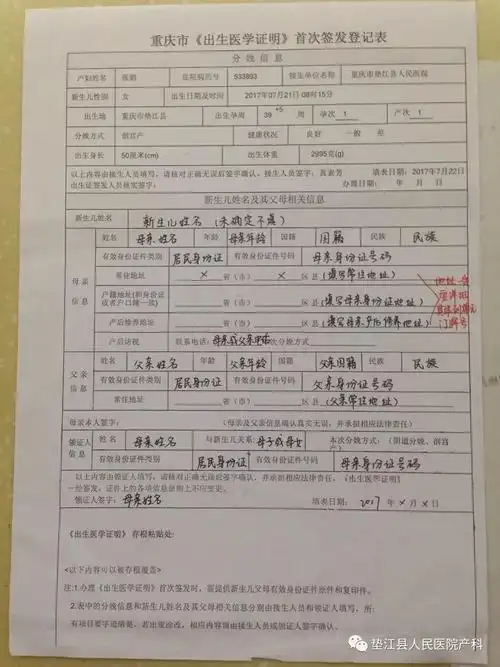 重庆市《出生医学证明》首次签发登记表
分娩信息
产妇姓名 住院病历号 533893 接生单位名称 重庆市垫江县人民医院
新生儿性别 女 出生日期及时间 2017年07月21日08时15分
出生地 重庆市垫江县 出生孕周 39+5 周 孕次 1 产次 1
分娩方式 剖宫产 健康状况 良好 一般 差
出生身长 50厘米(cm) 出生体重 2895克(g)
以上内容由接生人员填写，请核对正确无误后签字确认，接生人员签字： 填表日期：2017年7月22日
出生证签发人员核实签字： 办理日期： 年 月 日
新生儿姓名及其父母相关信息
新生儿姓名 新生儿姓名（未确定不填）
母亲信息
姓名 母亲姓名 年龄 母亲年龄 国籍 国籍 民族 民族
有效身份证件类别 居民身份证 有效身份证件号码 母亲身份证号码
常住地址 X 省（市） X 区县（填写常住地址）
户籍地址(和身份证或者户口簿一致) 省（市） 区县（填写母亲身份证地址）
产后修养地址 省（市） 区县（填写母亲产后修养地址）
产后访视 联系电话：母亲或父亲电话 次分娩方式
地址一定要详细
门牌号
父亲信息
姓名 父亲姓名 年龄 父亲年龄 国籍 父亲国籍 民族 民族
有效身份证件类别 居民身份证 有效身份证件号码 父亲身份证号码
常住地址 省（市） 区县（父亲常住地址）
母亲本人签字： （母亲及父亲信息确认真实无误，并承担相应法律责任）
领证人信息
姓名 母亲姓名 与新生儿关系 母子或母女 本次分娩方式：（阴道分娩、剖宫产）
有效身份证件类别 居民身份证 有效身份证件号码 母亲身份证号码
以上内容由领证人填写，请核对正确无误后签字确认，并承担相应法律责任，《出生医学证明》
一经签发，证件上的各项信息原则上不应变更。
领证人签字：母亲姓名 填表日期： 2017 年 X 月 X 日
《出生医学证明》存根粘贴处：
<以下内容可以被存根覆盖>
注:1.办理《出生医学证明》首次签发时，需提供新生儿父母有效身份证件原件和复印件。
2.表中的分娩信息和新生儿姓名及其父母相关信息分别由接生人员和领证人填写，所
有项目要字迹清晰，若出现涂改，相应内容须由接生人员或领证人签字确认。
垫江县人民医院产科